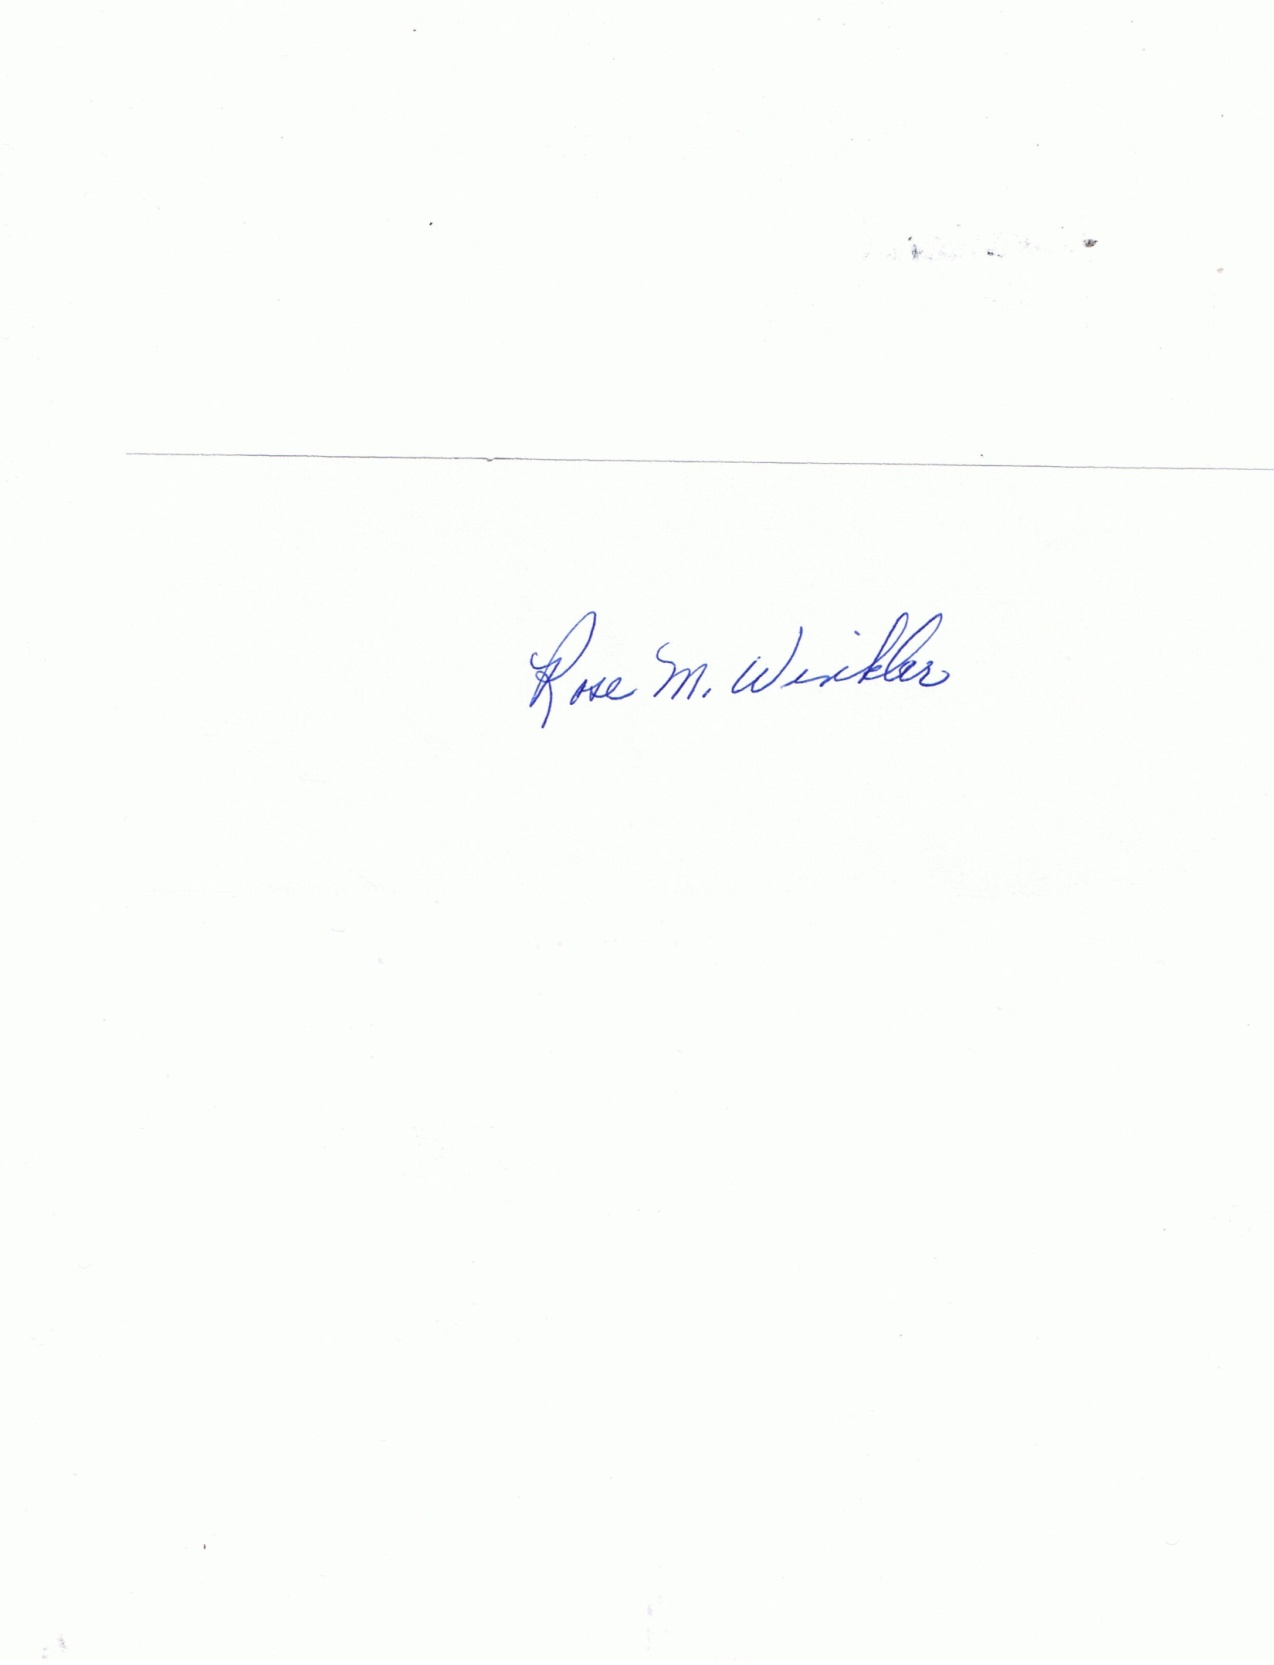 Rose M. Winkler